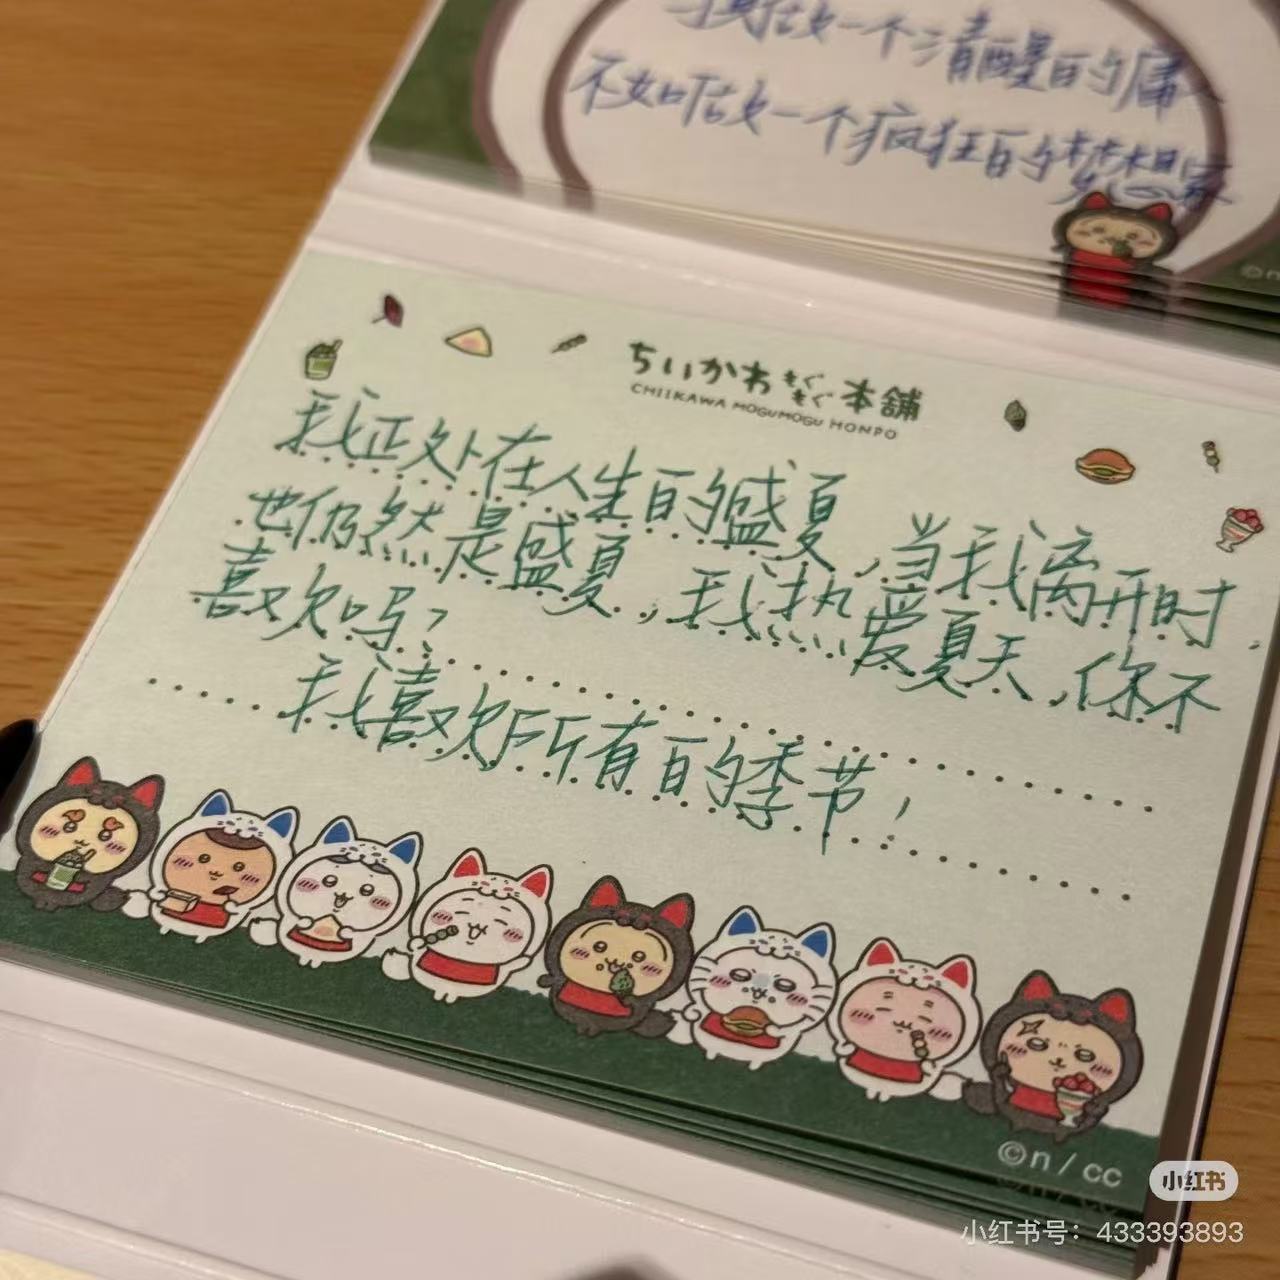 做一个清醒的庸人
不如做一个疯狂的梦想家
ちいかわもぐもぐ本舗
CHIIKAWA MOGUMOGU HONPO
我正处在人生的盛夏,当我离开时,
也仍然是盛夏,我热爱夏天,你不
喜欢吗?
我喜欢所有的季节!
©n
©n/cc
小红书
小红书号:433393893